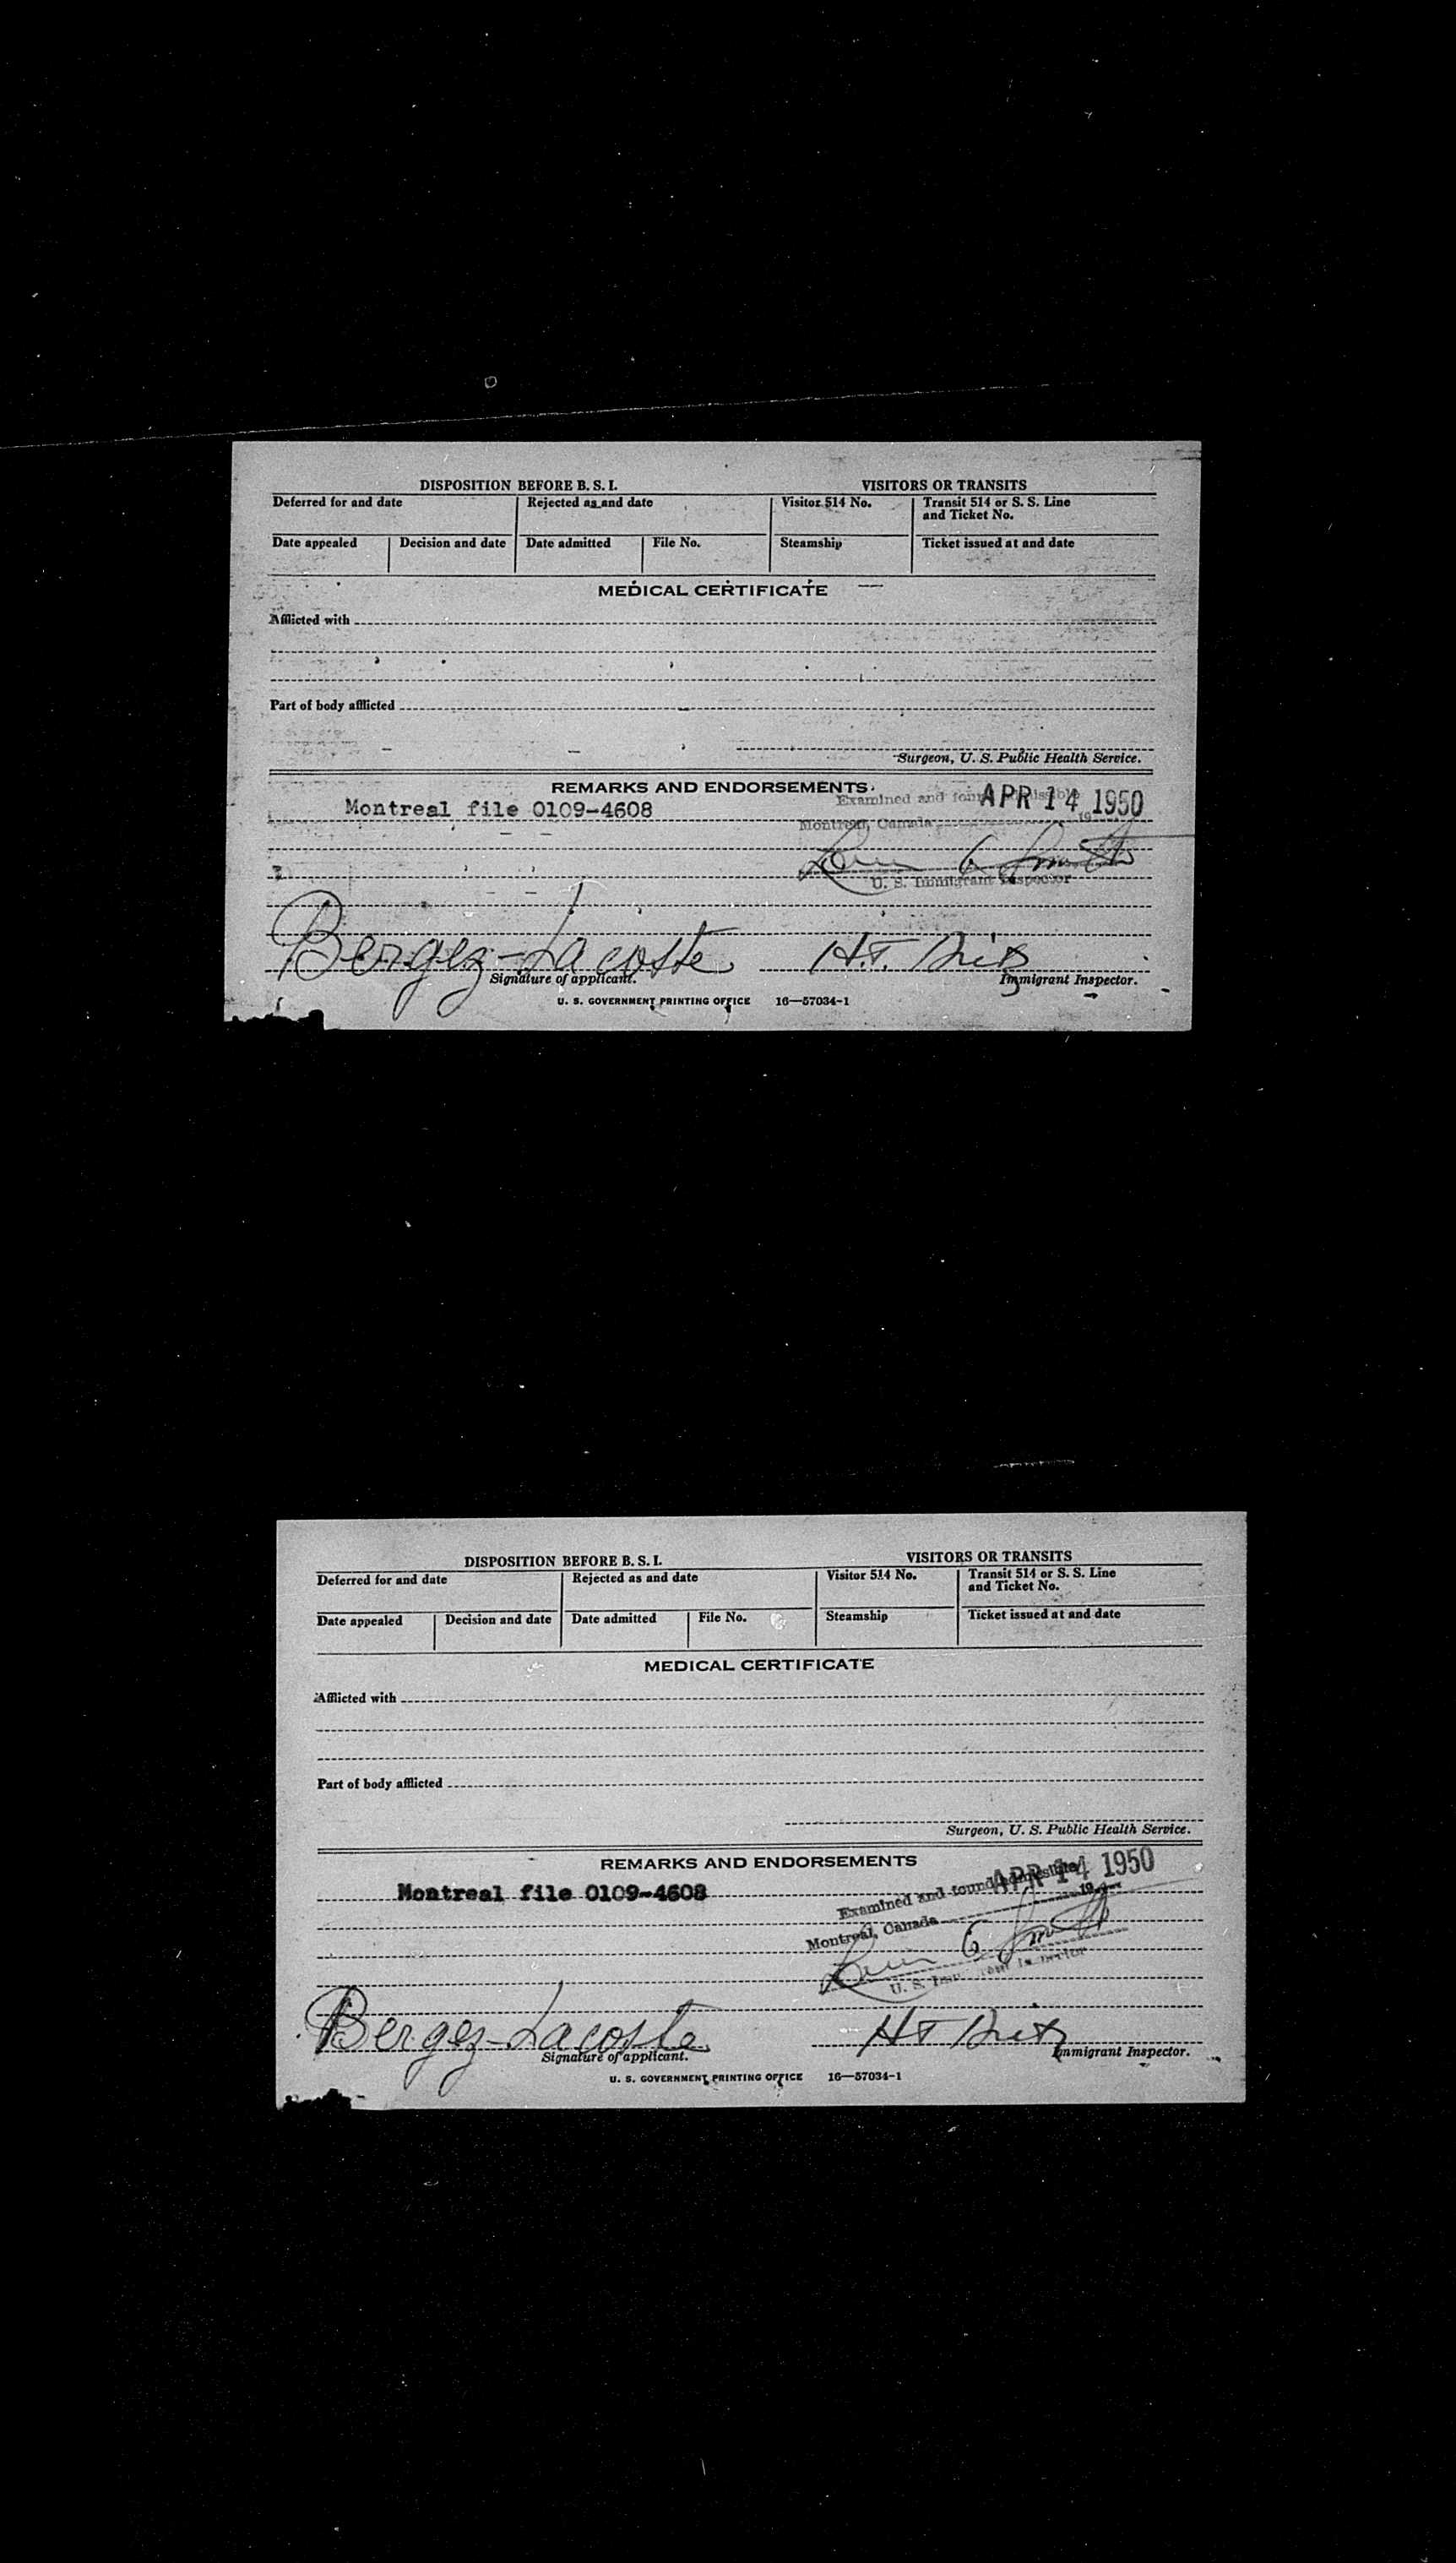 DISPOSITION BEFORE B. S. I. VISITORS OR TRANSITS
Deferred for and date Rejected as and date Visitor 514 No. Transit 514 or S. S. Line
and Ticket No.
Date appealed Decision and date Date admitted File No. Steamship Ticket issued at and date
MEDICAL CERTIFICATE
Afflicted with
Part of body afflicted
Surgeon, U. S. Public Health Service.
REMARKS AND ENDORSEMENTS
Examined and found admissible APR 14 1950
Montreal file 0109-4608
Montreal, Canada 19
U. S. Immigrant Inspector
Bergez-Lacoste H.T.
Signature of applicant. Immigrant Inspector.
U. S. GOVERNMENT PRINTING OFFICE 16—57034-1
DISPOSITION BEFORE B. S. I. VISITORS OR TRANSITS
Deferred for and date Rejected as and date Visitor 514 No. Transit 514 or S. S. Line
and Ticket No.
Date appealed Decision and date Date admitted File No. Steamship Ticket issued at and date
MEDICAL CERTIFICATE
Afflicted with
Part of body afflicted
Surgeon, U. S. Public Health Service.
REMARKS AND ENDORSEMENTS APR 14 1950
Montreal file 0109-4608 Examined and found admissible
Montreal, Canada 19
U. S. Immigrant Inspector
Bergez-Lacoste HT
Signature of applicant. Immigrant Inspector.
U. S. GOVERNMENT PRINTING OFFICE 16—57034-1